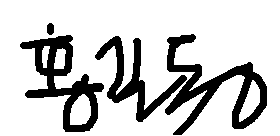 홍길동